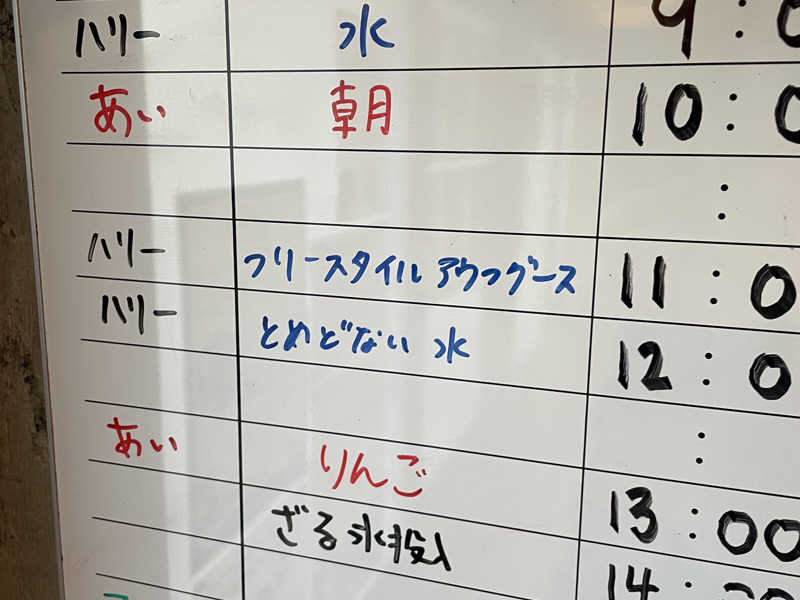 ハリー 水 9:0
あい 朝 10:0
:
ハリー フリースタイル アウフグース 11:0
ハリー とめどない 水 12:0
:
あい りんご 13:00
ざる氷投入 14: